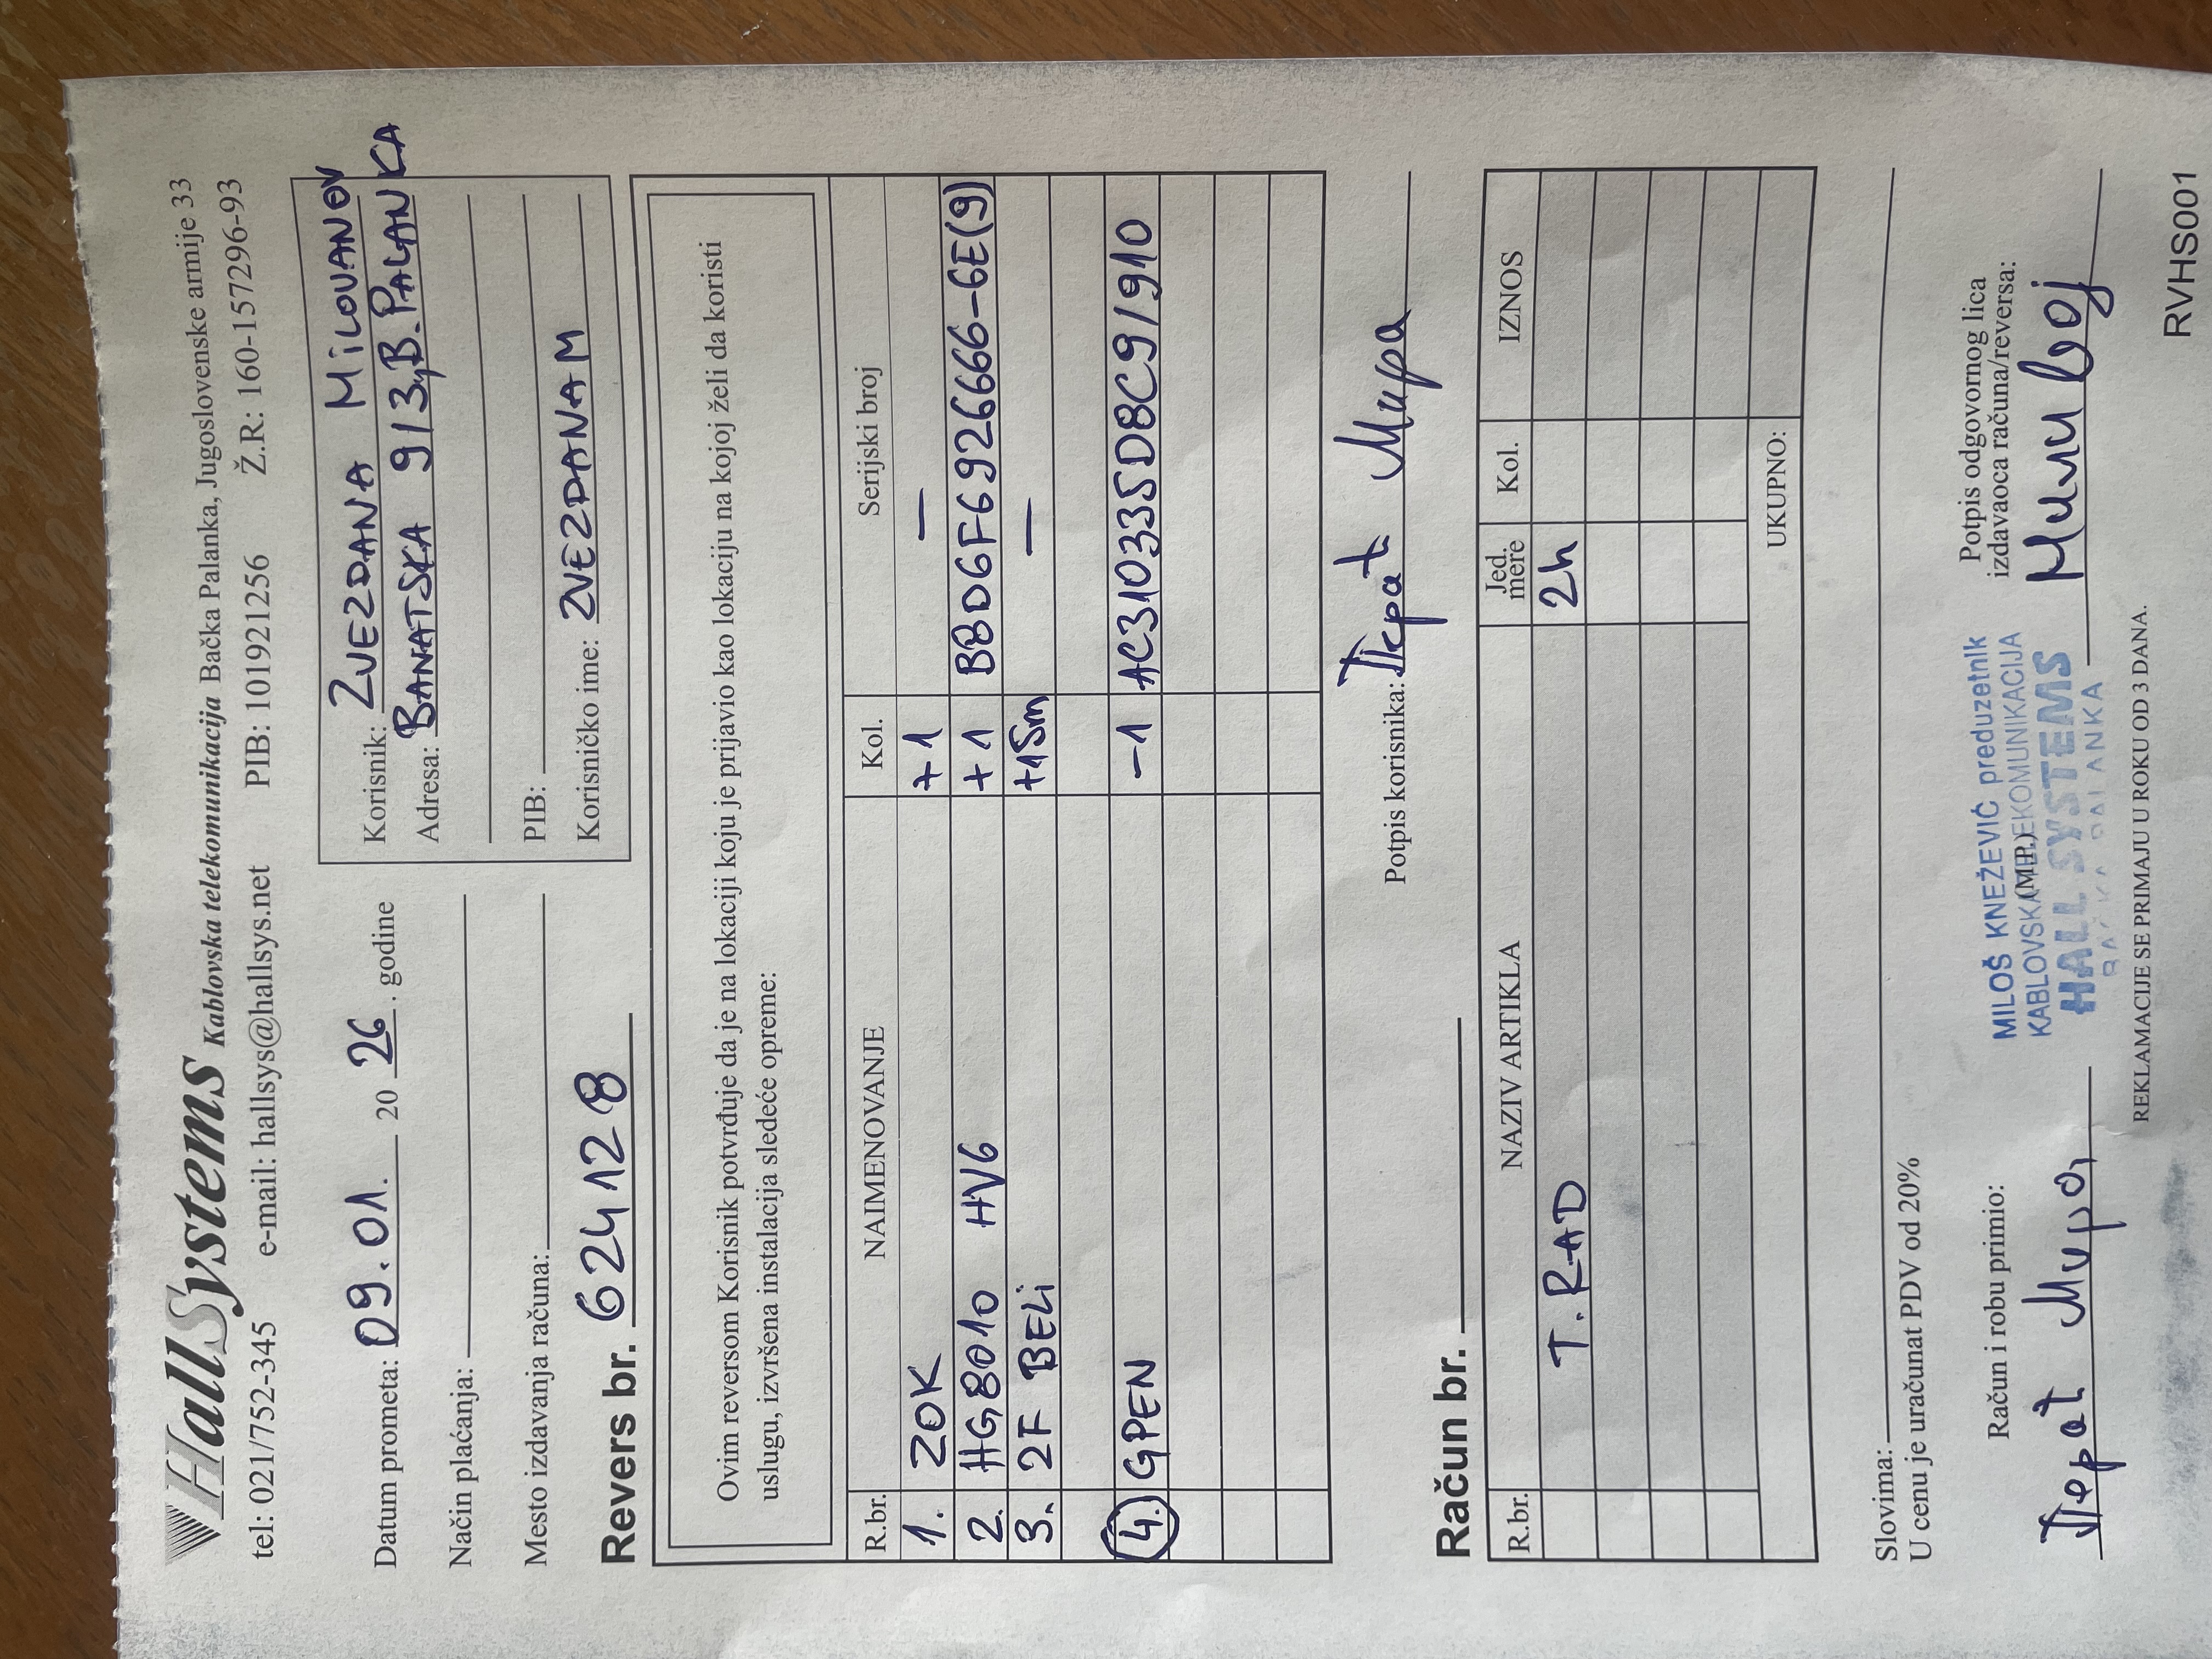 HallSystems Kablovska telekomunikacija Bačka Palanka, Jugoslovenske armije 33
tel: 021/752-345 e-mail: hallsys@hallsys.net PIB: 101921256 Ž.R: 160-157296-93
Datum prometa: 09.01. 2026. godine
Način plaćanja:
Mesto izdavanja računa:
Korisnik: ZVEZDANA MiLOVANOV
Adresa: BANATSKA 9/3, B. PALANKA
PIB:
Korisničko ime: ZVEZDANAM
Revers br. 624128
Ovim reversom Korisnik potvrđuje da je na lokaciji koju je prijavio kao lokaciju na kojoj želi da koristi
uslugu, izvršena instalacija sledeće opreme:
R.br. NAIMENOVANJE Kol. Serijski broj
1. ZOK +1 —
2. HG8010 HV6 +1 BBD6F6926666-6E(9)
3. 2F BELi +15m —
4. GPEN -1 AC310335D8C9/910
Potpis korisnika: Терат Мира
Račun br.
R.br. NAZIV ARTIKLA Jed. mere Kol. IZNOS
T. RAD 2h
UKUPNO:
Slovima:
U cenu je uračunat PDV od 20%
Račun i robu primio:
Терат Мира
MILOŠ KNEŽEVIĆ preduzetnik
KABLOVSKA TELEKOMUNIKACIJA
(M.P.)
HALL SYSTEMS
BAČKA PALANKA
Potpis odgovornog lica
izdavaoca računa/reversa:
REKLAMACIJE SE PRIMAJU U ROKU OD 3 DANA.
RVHS001